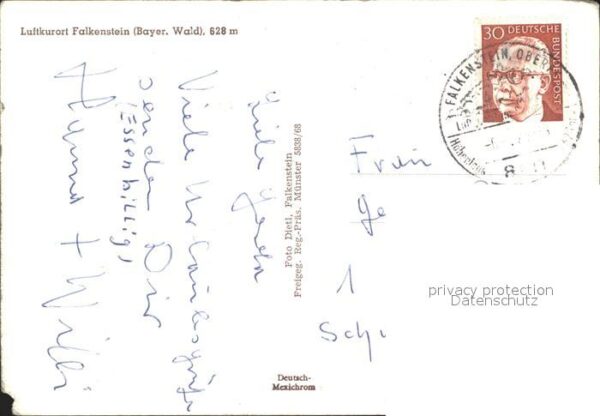 Luftkurort Falkenstein (Bayer. Wald), 628 m
Liebe Gerda
Viele Urlaubsgrüße
senden Dir
(Essen billig)
Hanna + Willi
Foto Dietl, Falkenstein
Freigeg. Reg.-Präs. Münster 5838/68
Deutsch-
Mexichrom
30 DEUTSCHE
BUNDESPOST
FALKENSTEIN, OBER
Frau
Ge
1
Sch
privacy protection
Datenschutz